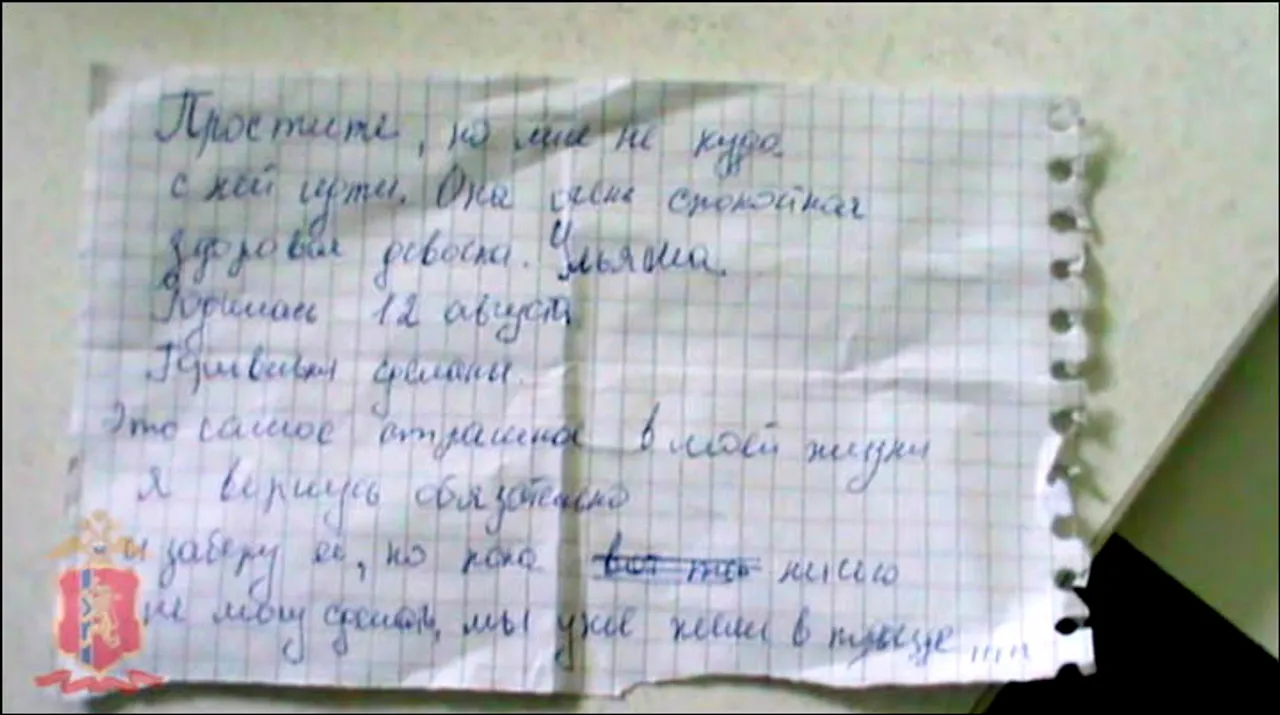 Простите, но мне не куда
с ней идти. Она очень спокойная
здоровая девочка. Ульяна.
Родилась 12 августа
Прививки сделаны.
Это самое страшное в моей жизни
Я вернусь обязательно
и заберу её, но пока ничего
не могу сделать, мы уже жили в